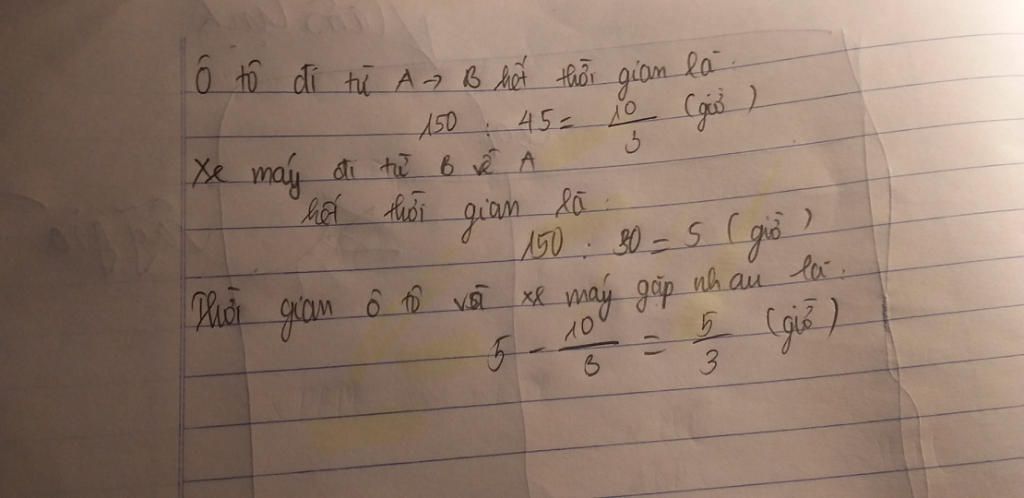 Ô tô đi từ A → B hết thời gian là:
150 : 45 = 10/3 (giờ)
Xe máy đi từ B về A
hết thời gian là:
150 : 30 = 5 (giờ)
Thời gian ô tô và xe máy gặp nhau là:
5 - 10/3 = 5/3 (giờ)